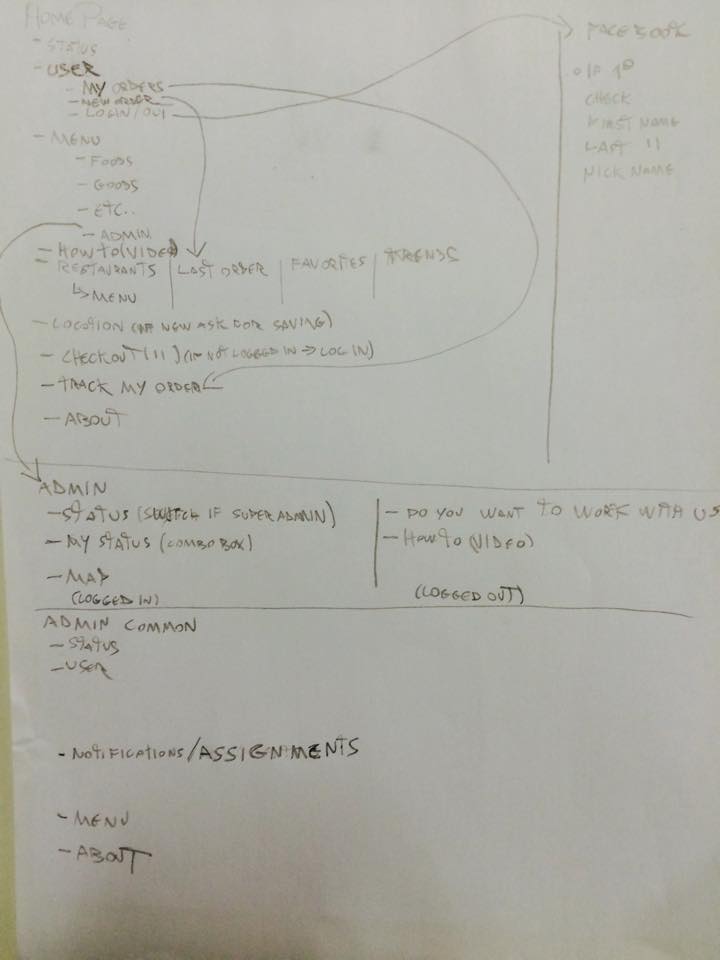 HOME PAGE
- STATUS
- USER
- MY ORDERS
- NEW ORDER
- LOGIN / OUT
- MENU
- FOODS
- GOODS
- ETC..
- ADMIN
- HOW TO (VIDEO)
- RESTAURANTS | LAST ORDER | FAVORITES | TRENDS
↳ MENU
- LOCATION (IF NEW ASK FOR SAVING)
- CHECKOUT (!!) (IF NOT LOGGED IN → LOG IN)
- TRACK MY ORDER
- ABOUT
FACEBOOK
IF 1º
CHECK
FIRST NAME
LAST "
NICK NAME
ADMIN
- STATUS (SWITCH IF SUPER ADMIN)
- MY STATUS (COMBO BOX)
- MAP
(LOGGED IN)
- DO YOU WANT TO WORK WITH US
- HOW TO (VIDEO)
(LOGGED OUT)
ADMIN COMMON
- STATUS
- USER
- NOTIFICATIONS/ASSIGNMENTS
- MENU
- ABOUT